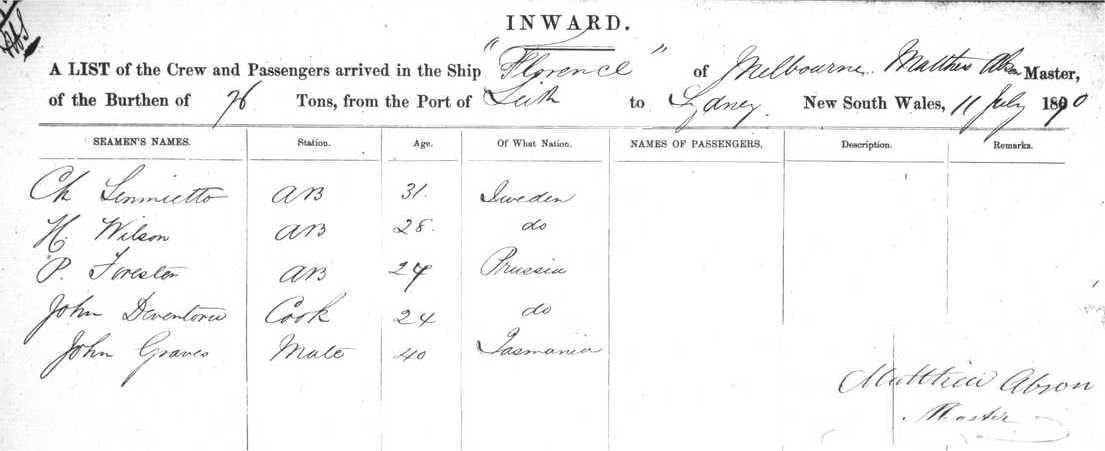 INWARD.
A LIST of the Crew and Passengers arrived in the Ship "Florence" of Melbourne. Matthew Abson Master,
of the Burthen of 76 Tons, from the Port of Leith to Sydney. New South Wales, 11 July 1870
SEAMEN'S NAMES. Station. Age. Of What Nation. NAMES OF PASSENGERS. Description. Remarks.
Ch AB 31. Sweden
H. Wilson AB 28. do
P. Forester AB 24 Prussia
John Cook 24 do
John Graves Mate 40 Tasmania
Matthew Abson
Master